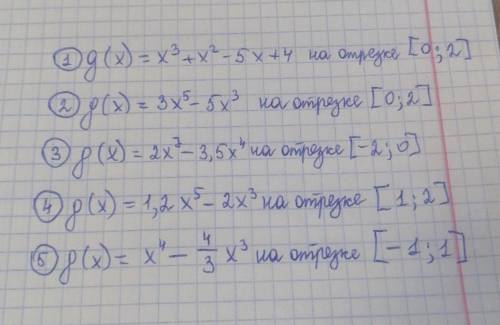 ① g(x) = x³ + x² - 5x + 4 на отрезке [0; 2]
② g(x) = 3x⁵ - 5x³ на отрезке [0; 2]
③ g(x) = 2x⁷ - 3,5x⁴ на отрезке [-2; 0]
④ g(x) = 1,2x⁵ - 2x³ на отрезке [1; 2]
⑤ g(x) = x⁴ - 4/3 x³ на отрезке [-1; 1]